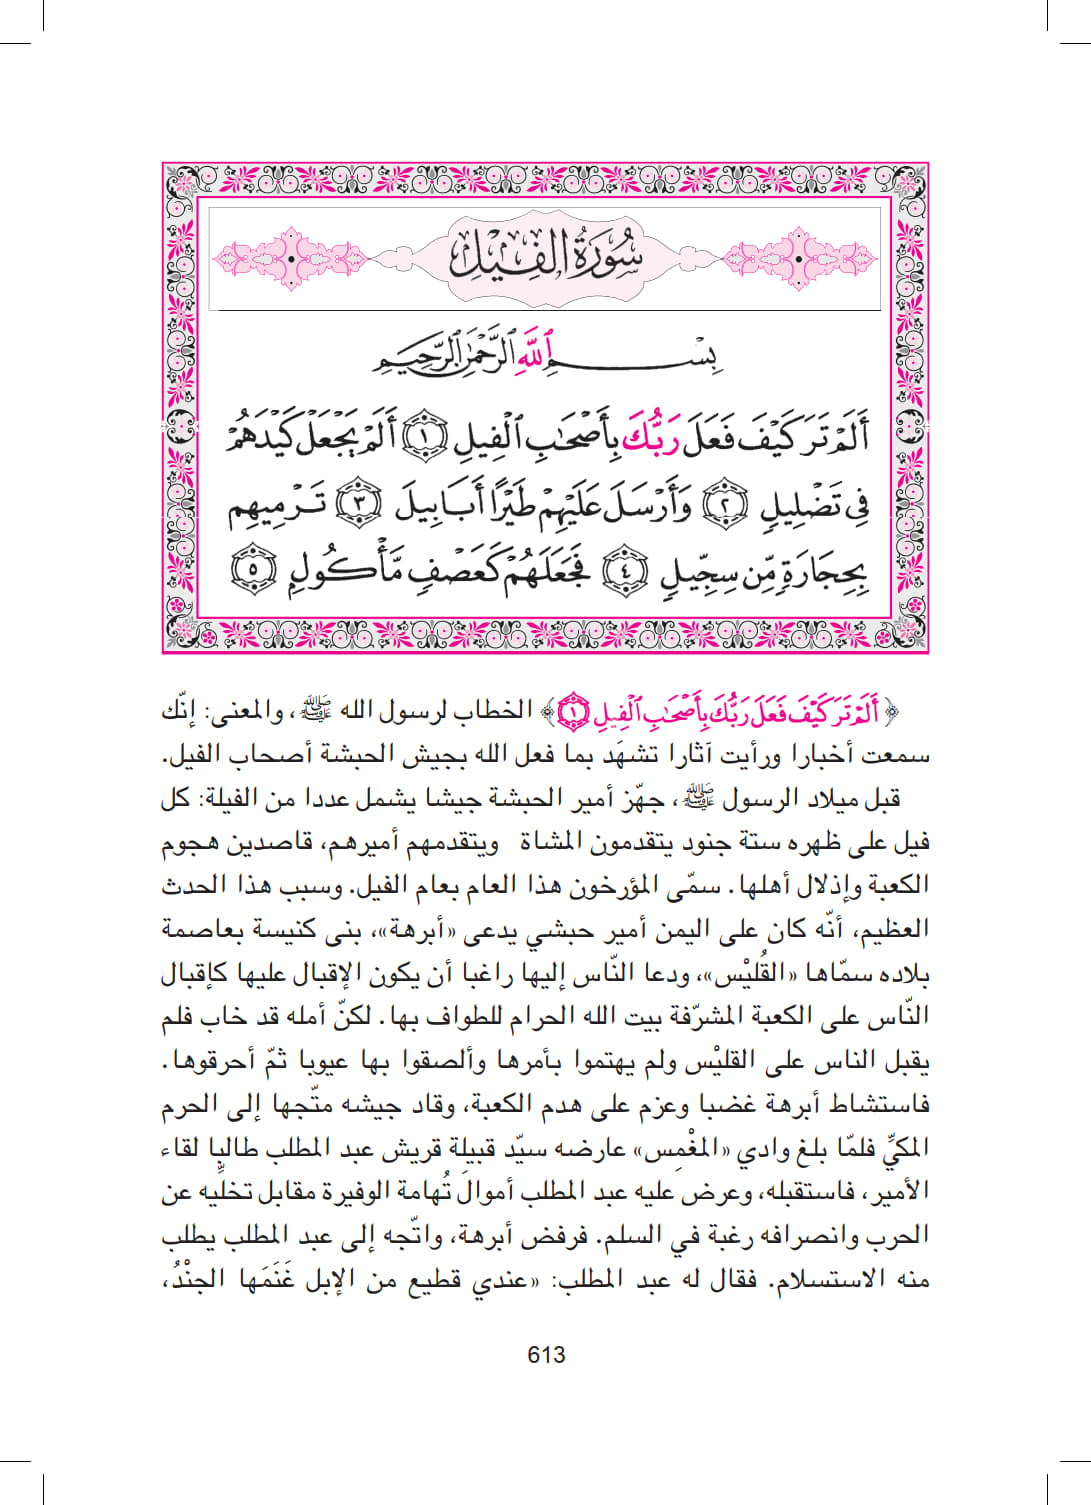 سُورَةُ الْفِيلِ
بِسْمِ ٱللَّهِ ٱلرَّحْمَٰنِ ٱلرَّحِيمِ
أَلَمْ تَرَ كَيْفَ فَعَلَ رَبُّكَ بِأَصْحَٰبِ ٱلْفِيلِ ١ أَلَمْ يَجْعَلْ كَيْدَهُمْ
فِي تَضْلِيلٍ ٢ وَأَرْسَلَ عَلَيْهِمْ طَيْرًا أَبَابِيلَ ٣ تَرْمِيهِم
بِحِجَارَةٍ مِّن سِجِّيلٍ ٤ فَجَعَلَهُمْ كَعَصْفٍ مَّأْكُولٍ ٥
﴿أَلَمْ تَرَ كَيْفَ فَعَلَ رَبُّكَ بِأَصْحَٰبِ ٱلْفِيلِ ١﴾ الخطاب لرسول الله ﷺ، والمعنى: إنّك
سمعت أخبارا ورأيت آثارا تشهَد بما فعل الله بجيش الحبشة أصحاب الفيل.
قبل ميلاد الرسول ﷺ، جهّز أمير الحبشة جيشا يشمل عددا من الفيلة: كل
فيل على ظهره ستة جنود يتقدمون المشاة ويتقدمهم أميرهم، قاصدين هجوم
الكعبة وإذلال أهلها. سمّى المؤرخون هذا العام بعام الفيل. وسبب هذا الحدث
العظيم، أنّه كان على اليمن أمير حبشي يدعى «أبرهة»، بنى كنيسة بعاصمة
بلاده سمّاها «القُليْس»، ودعا النّاس إليها راغبا أن يكون الإقبال عليها كإقبال
النّاس على الكعبة المشرّفة بيت الله الحرام للطواف بها. لكنّ أمله قد خاب فلم
يقبل الناس على القليْس ولم يهتموا بأمرها وألصقوا بها عيوبا ثمّ أحرقوها.
فاستشاط أبرهة غضبا وعزم على هدم الكعبة، وقاد جيشه متّجها إلى الحرم
المكيِّ فلمّا بلغ وادي «المغْمِس» عارضه سيّد قبيلة قريش عبد المطلب طالبٍا لقاء
الأمير، فاستقبله، وعرض عليه عبد المطلب أموالَ تُهامة الوفيرة مقابل تخليه عن
الحرب وانصرافه رغبة في السلم. فرفض أبرهة، واتّجه إلى عبد المطلب يطلب
منه الاستسلام. فقال له عبد المطلب: «عندي قطيع من الإبل غَنَمَها الجنْدُ،
613